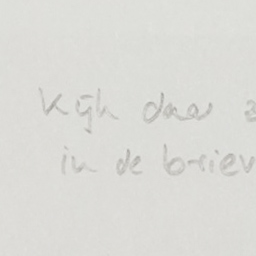 Kijk daar
in de briev